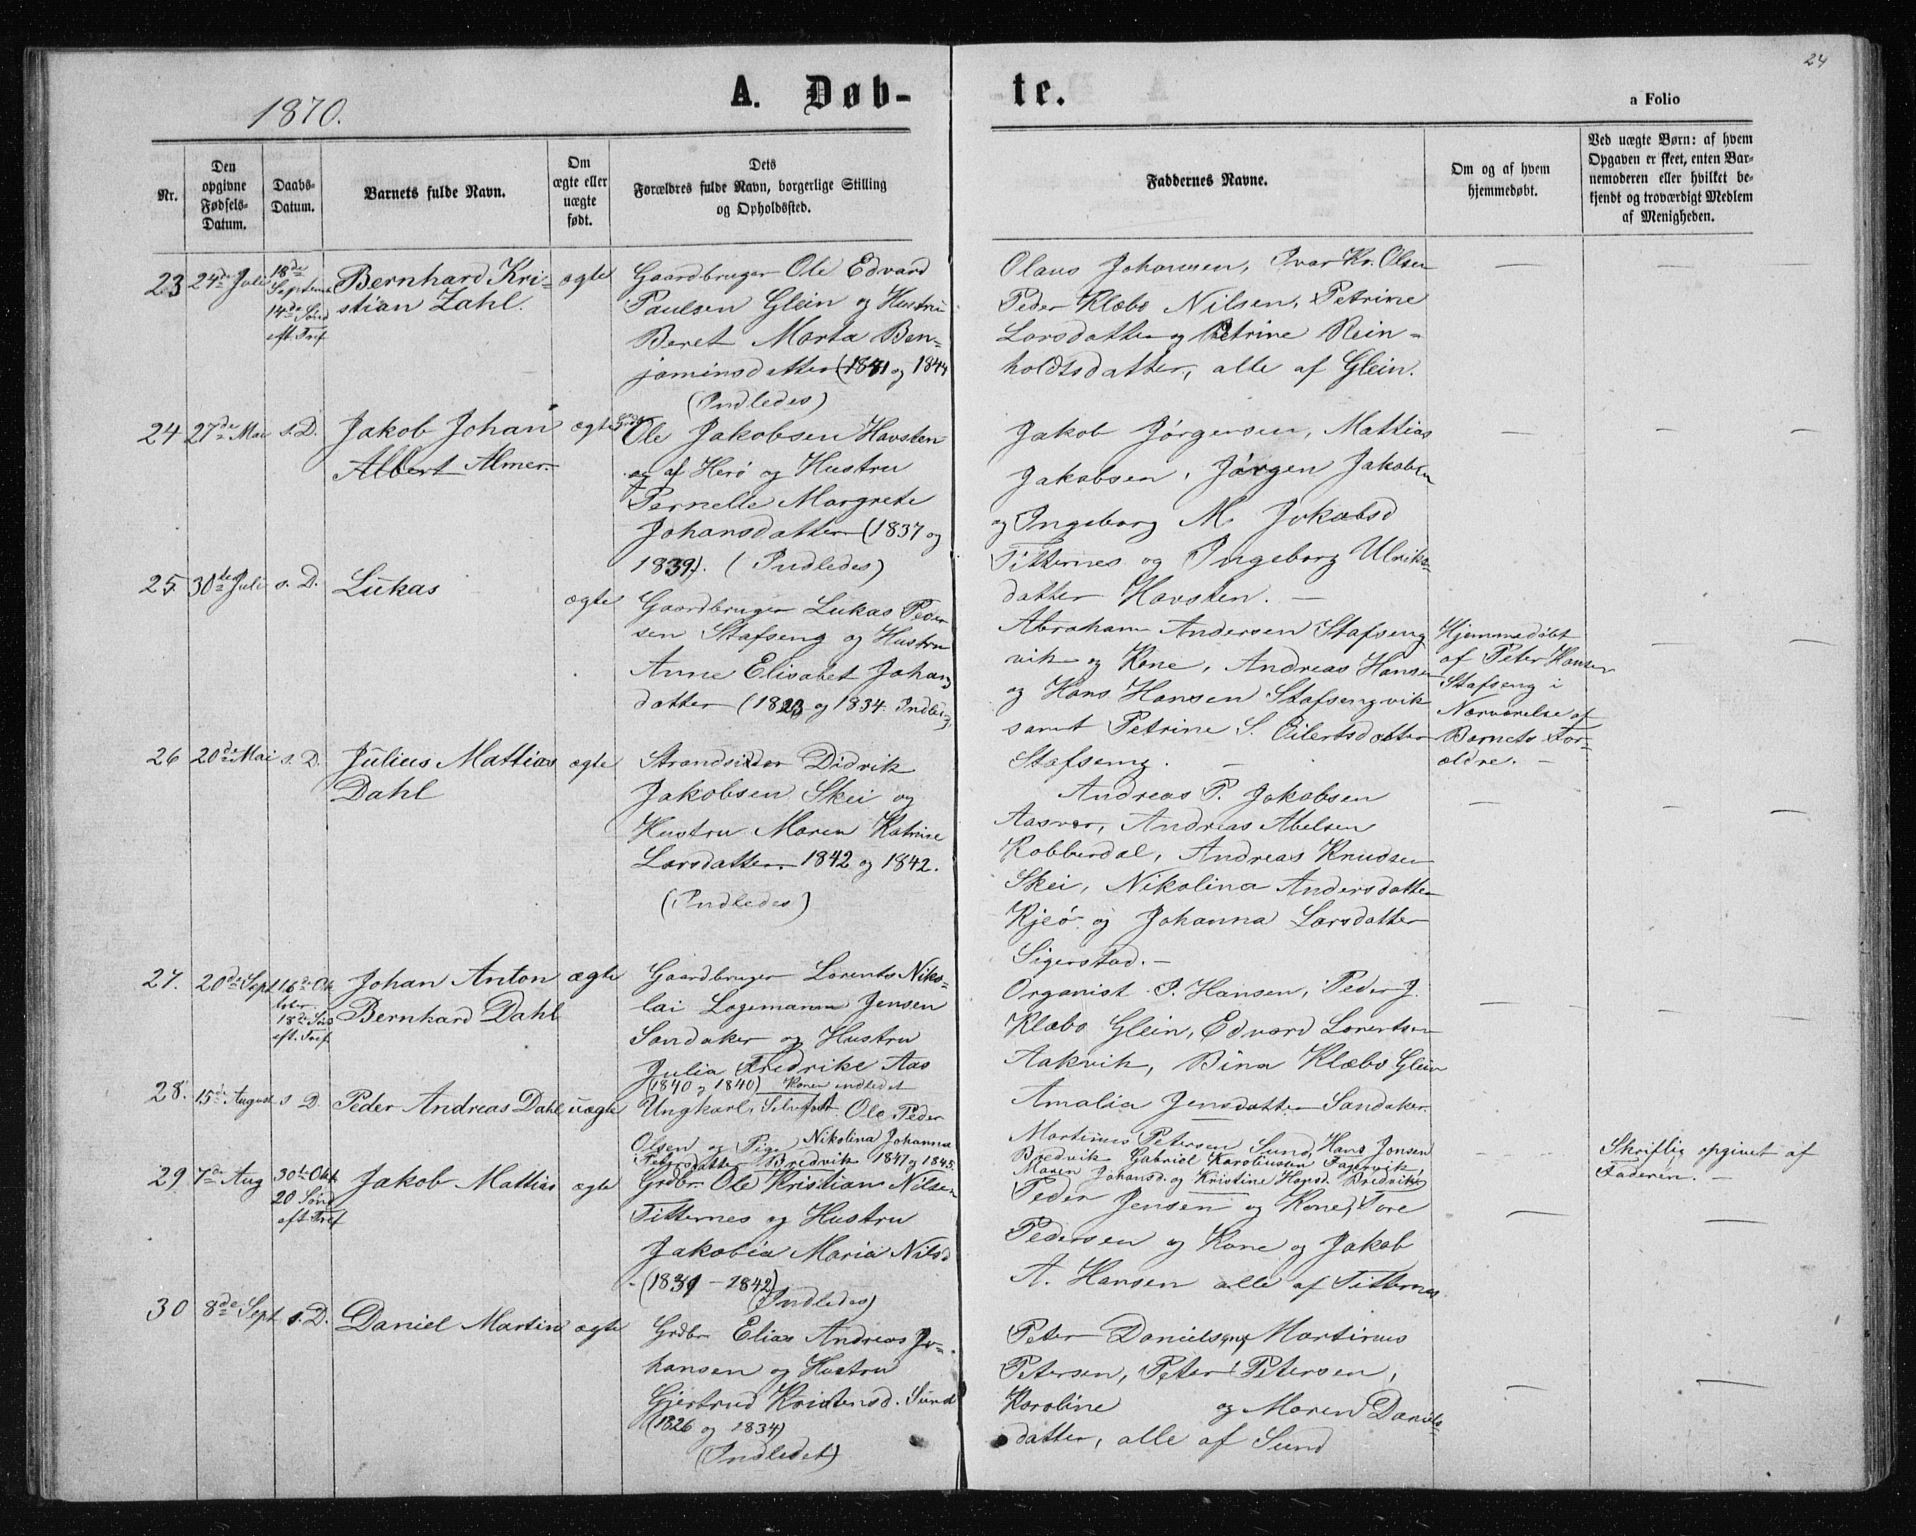 24
1870.
A. Døb-
te.
a Folio
Nr.
Den
opgivne
Fødsels-
Datum.
Daabs-
Datum.
Barnets fulde Navn.
Om
ægte eller
uægte
født.
Dets
Forældres fulde Navn, borgerlige Stilling
og Opholdssted.
Faddernes Navne.
Om og af hvem
hjemmedøbt.
Ved uægte Børn: af hvem
Opgaven er skeet, enten Bar-
nemoderen eller hvilket be-
kjendt og troværdigt Medlem
af Menigheden.
23
24de Juli
18de
Septemb
14de Sönd
eft. Tref
Bernhard Kri-
stian Zahl.
ægte
Gaardbruger Ole Edvard
Paulsen Glein og Hustru
Beret Marta Ben-
jaminsdatter og 1844
(Indledes)
Olaus Johansen, Ivar Kr. Olsen
Peder Klæbo Nilsen, Petrine
Larsdatter og Petrine Rein-
holdtsdatter, alle af Glein.
24
27de Mai
s. D.
Jakob Johan
Albert Almer
ægte
Ole Jakobsen Havsten
og af Herö og Hustru
Pernelle Margrete
Johansdatter (1837 og
1839). (Indledes)
Jakob Jørgensen, Mattias
Jakobsen, Jørgen Jakobsen
og Ingeborg M. Jakobsd
Titternes og Ingeborg Ulriks-
datter Havsten. —
25
30te Juli
s. D.
Lukas
ægte
Gaardbruger Lukas Peder
sen Stafseng og Hustru
Anne Elisabet Johans
datter (1823 og 1834. Indledes)
Abraham Andersen Stafseng
vik og Kone, Andreas Hansen
og Hans Hansen Stafsengvik
samt Petrine S. Eilertsdatter
Stafseng. —
Hjemmedøbt
af Peter Hansen
Stafseng i
Nærværelse af
Barnets For-
ældre. —
26
20de Mai
s. D.
Julius Mattias
Dahl
ægte
Strandsidder Didrik
Jakobsen Skei og
Hustru Maren Katrine
Larsdatter 1842 og 1842.
(Indledes)
Andreas P. Jakobsen
Aasvær, Andreas Abelsen
Kobberdal, Andreas Knudsen
Skei, Nikolina Andersdatter
Kjeö og Johanna Larsdatter
Sigerstad. —
27.
20de Sept
16de Ok
tober
18de Sön
eft. Tref
Johan Anton
Bernhard Dahl
ægte
Gaardbruger Lorents Niko-
lai Lagemann Jensen
Sandaker og Hustru
Julia Fredrike Aas
(1840 og 1840) Konen indledet
Organist P. Hansen, Peder J.
Klæbo Glein, Edvard Lorentsen
Aakvik, Bina Klæbo Glein
Amalia Jensdatter Sandaker.
28.
15de August
s D.
Peder Andreas Dahl
uægte
Ungkarl, Ole Peder
Olsen og Pige Nikolina Johanna
Pedersdatter Bredvik 1847 og 1845.
Martinus Petersen Sund, Hans Jonsen
Bredvik Gabriel Karoliussen Fagervik,
Maren Johansd. og Kristine Hansd. Bredvik
Skriflig opgivet af
Faderen. —
29
7de Aug
30te Okt
20 Sönd
eft Tref
Jakob Mattias
ægte
Grdbr Ole Kristian Nilsen
Titternes og Hustru
Jakobia Maria Nilsd
(1831 — 1842)
(Indledes)
Peder Jensen og Kone, Tore
Pedersen og Kone og Jakob
A. Hansen alle af Titternes
30
8de Sept
s. D.
Daniel Martin
ægte
Grdbr Elias Andreas Jo-
hansen og Hustru
Gjertrud Kristensd. Sund
(1826 og 1834)
(Indledet)
Peter Danielsen, Martinus
Petersen, Peter Petersen,
Karoline og Maren Daniels-
datter, alle af Sund